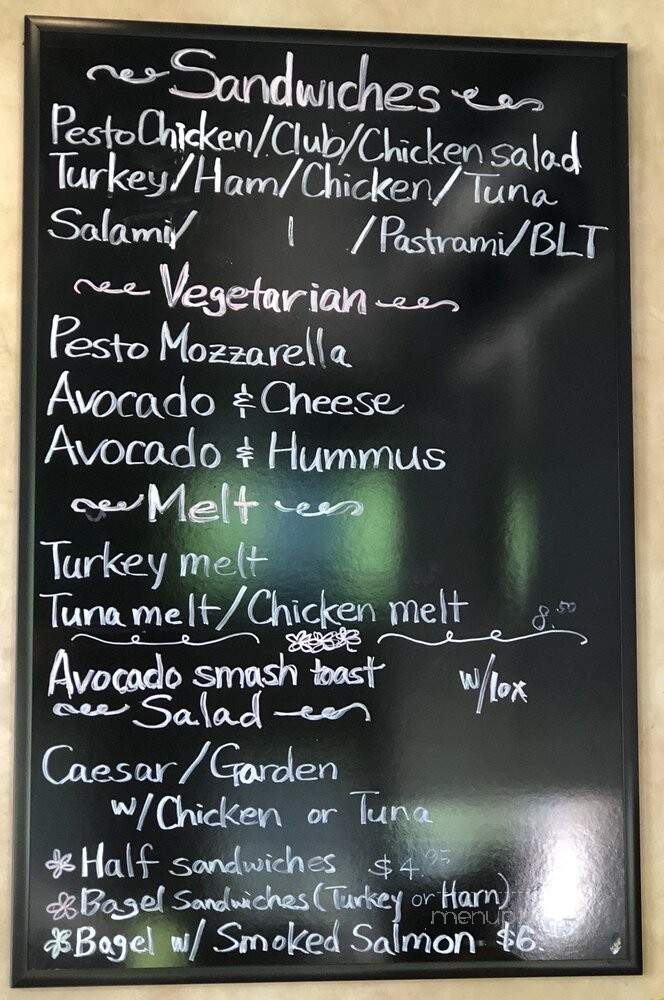 Sandwiches
Pesto Chicken/Club/Chicken salad
Turkey/Ham/Chicken/Tuna
Salami/ | /Pastrami/BLT
Vegetarian
Pesto Mozzarella
Avocado & Cheese
Avocado & Hummus
Melt
Turkey melt
Tuna melt/Chicken melt 8.50
Avocado smash toast w/lox
Salad
Caesar/Garden
w/Chicken or Tuna
Half sandwiches $4.95
Bagel Sandwiches (Turkey or Ham)
Bagel w/ Smoked Salmon $6.